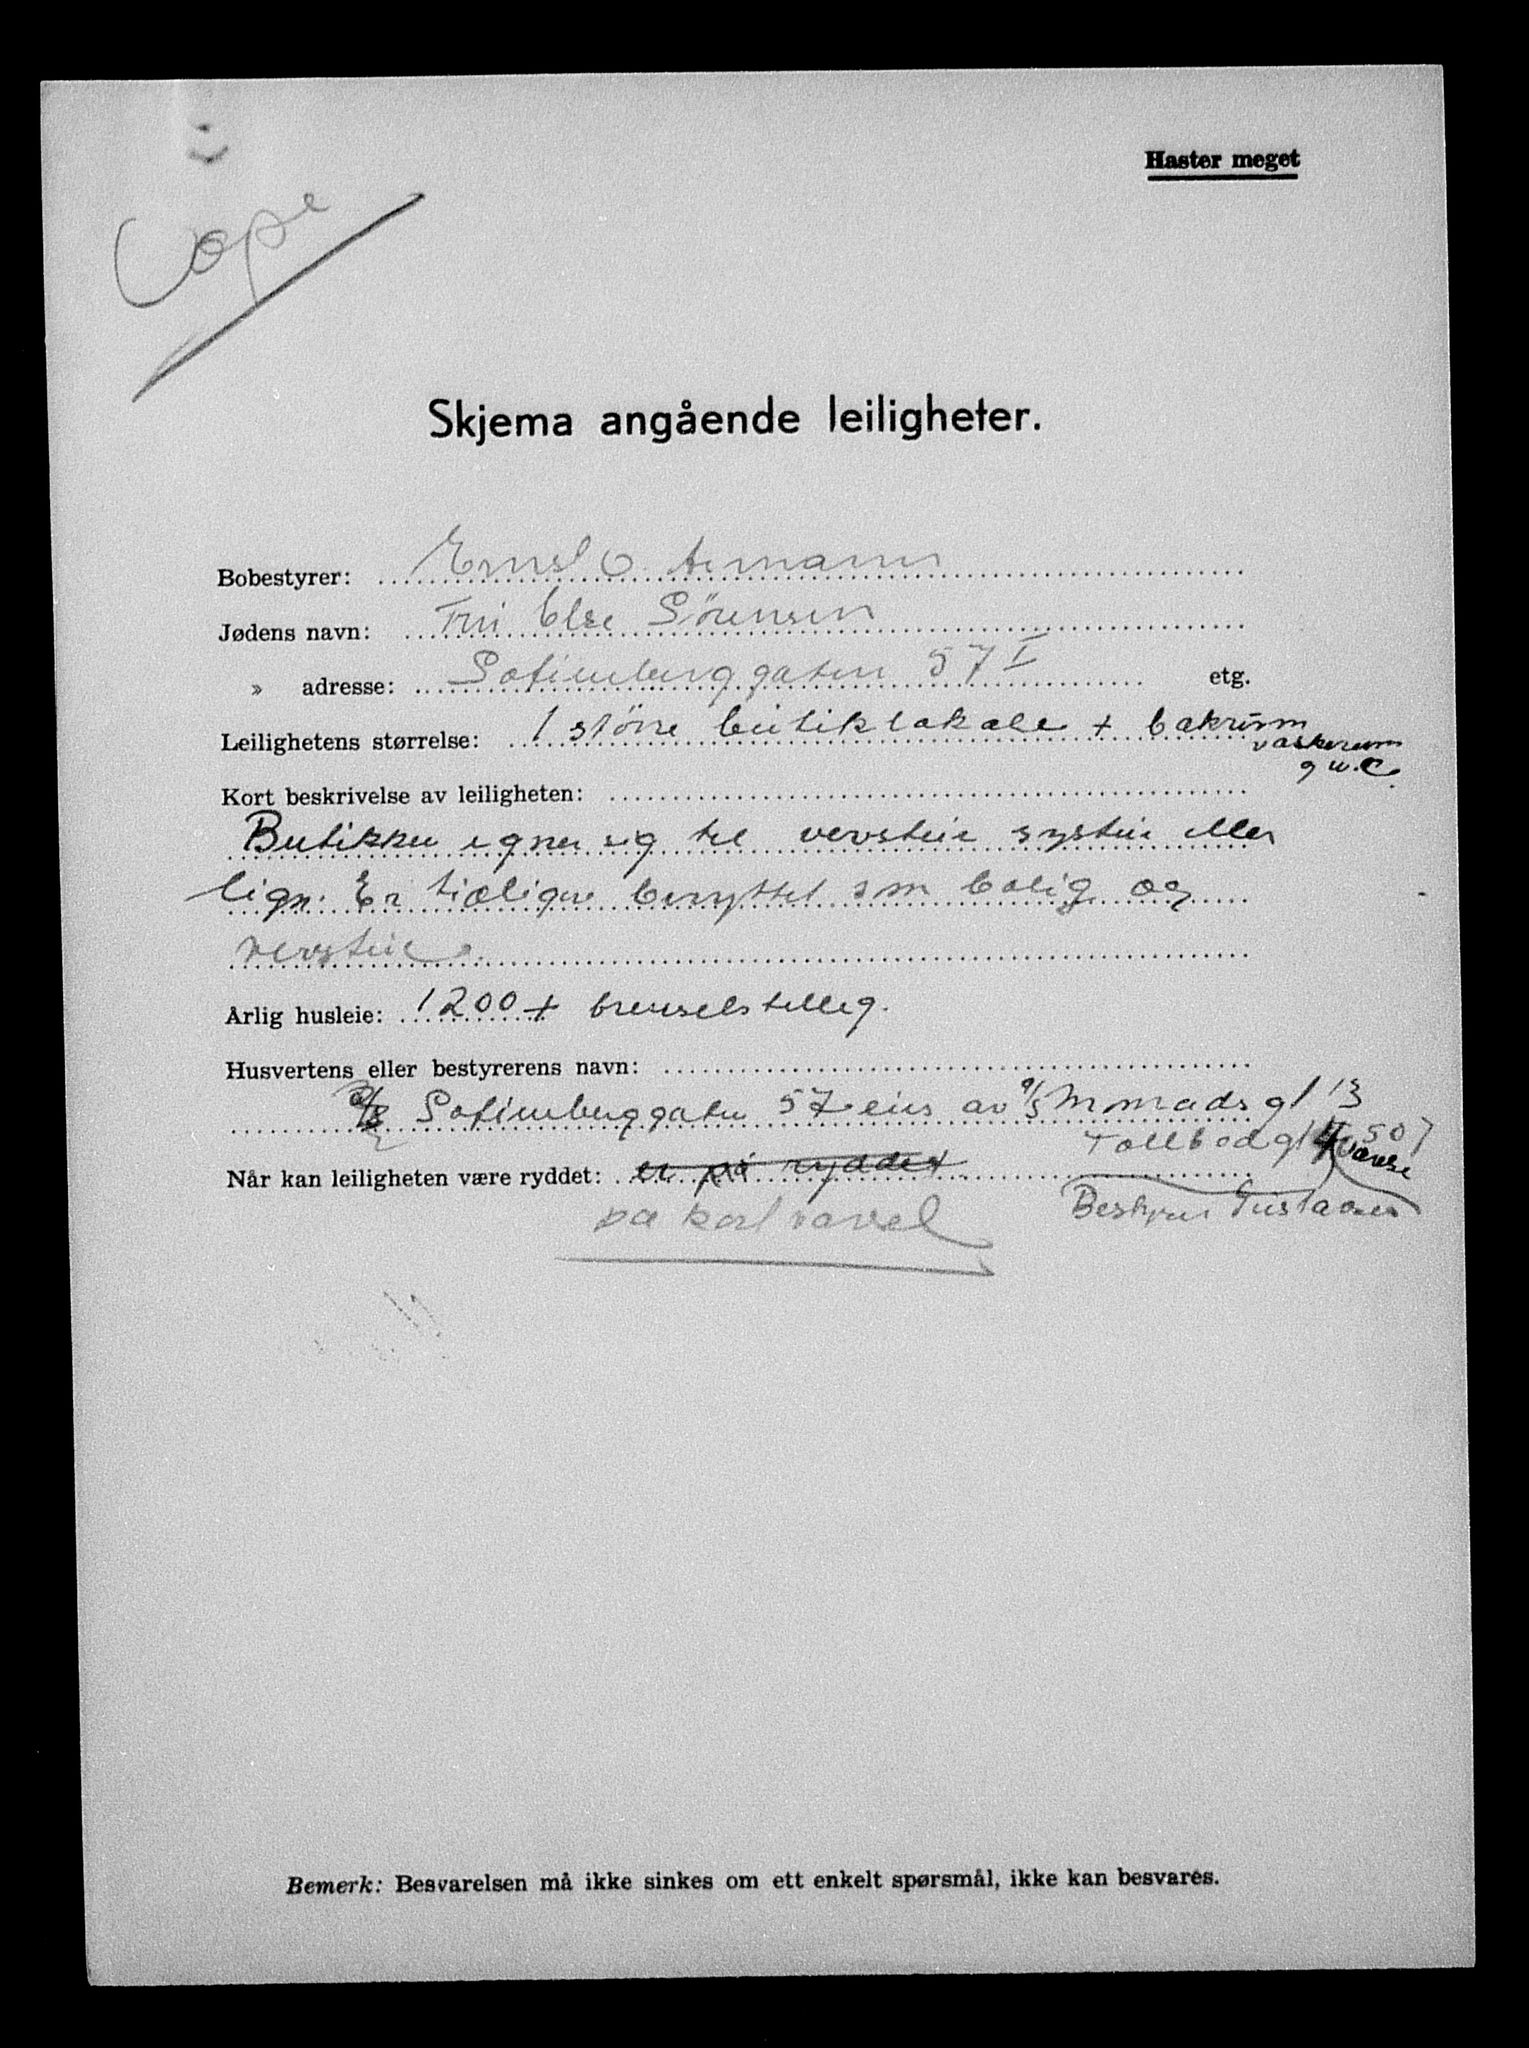 Haster meget
Cope
Skjema angående leiligheter.
Bobestyrer: Ernst O. Aemann
Jødens navn: Fru Else Sörensen
» adresse: Sofienberggaten 57 I etg.
Leilighetens størrelse: 1 större butiklokale + bakrum
vaskerum
og w.c.
Kort beskrivelse av leiligheten:
Butikken egner sig til vevstue systue eller
lign. Er tidligere benyttet som bolig og
vevstue.
Årlig husleie: 1200 + brenselstillegg.
Husvertens eller bestyrerens navn:
A/S Sofienberggaten 57 eies av A/S Monradsgt 13
Tollbodgt
Når kan leiligheten være ryddet: er på ryddet
Bestyrer Gustavsen
på kort varsel
Bemerk: Besvarelsen må ikke sinkes om ett enkelt spørsmål, ikke kan besvares.